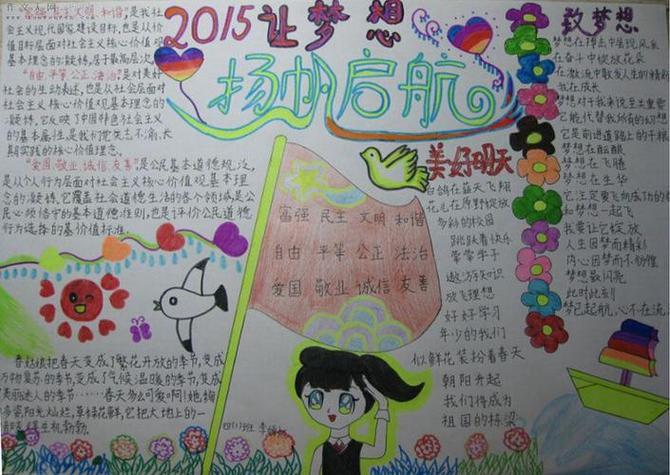 2015让梦想
扬帆启航
"富强、民主、文明、和谐"是我社
会主义现代国家建设目标,也是从价
值目标层面对社会主义核心价值观
基本理念的凝练,居于最高层次,
"自由、平等、公正、法治"是对美好
社会的生动表述,也是从社会层面对
社会主义核心价值观基本理念的
凝练,它反映了中国特色社会主义
的基本属性,是我们党矢志不渝,长
期实践的核心价值理念。
"爱国、敬业、诚信、友善"是公民基本道德规范,
是从个人行为层面对社会主义核心价值观基本理
念的凝练,它覆盖社会道德生活的各个领域,是公
民必须恪守的基本道德准则,也是评价公民道德
行为选择的基价值标准。
春姑娘把春天变成了繁花开放的季节,变成
万物复苏的季节,变成了气候温暖的季节,变成
美丽迷人的季节……春天多么可爱啊!她
阳光灿烂,草绿花鲜,它把大地上的一
生机勃勃。
富强 民主 文明 和谐
自由 平等 公正 法治
爱国 敬业 诚信 友善
美好明天
白鸽在蓝天飞翔
花儿在原野绽放
多彩的校园
跳跃着快乐
莘莘学子
遨游知识
放飞理想
好好学习
年少的我们
似鲜花装扮着春天
朝阳升起
我们将成为
祖国的栋梁
致梦想
梦想在搏击中展现风采
在奋斗中绽放花朵
在激流中散发人生的精彩
我在成长
梦想对于我来说至关重要
它能代替我所有的幻想
它是前进道路上的干粮
梦想在酝酿
梦想在飞腾
梦想在生华
它注定要飞向成功的
和梦想一起飞
我要让它绽放
人生因梦而精彩
内心因梦而不彷徨
梦想最闪亮
此时此刻
梦已起航,心不在流